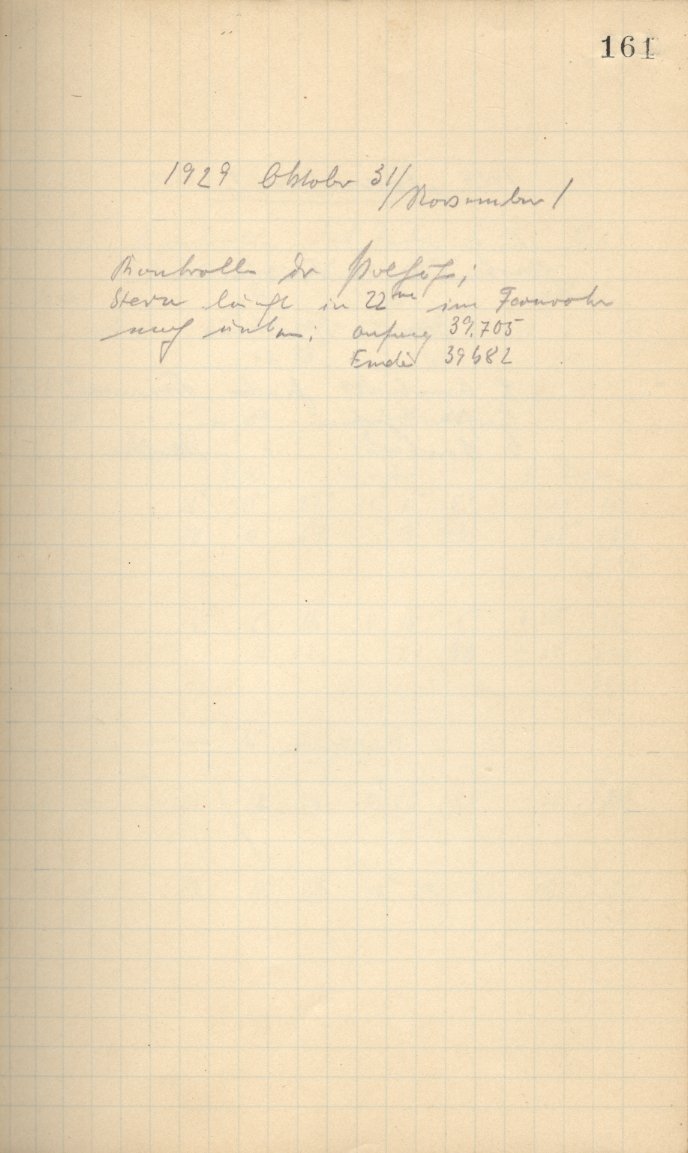 161
1929 Oktober 31/November 1
Kontrolle der Polhöhe;
Stern läuft in 22ᵐ im Fernrohr
nach unten: Anfang 39.705
Ende 39682